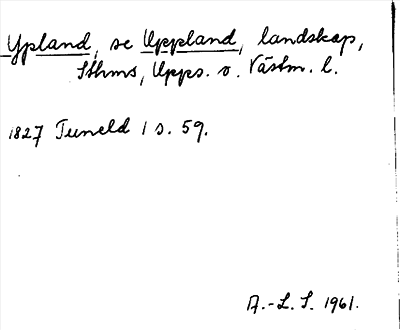 Ypland, se Uppland, landskap,
Sthms, Upps. o. Västm. l.
1827 Tuneld 1 s. 59.
A.-L. S. 1961.